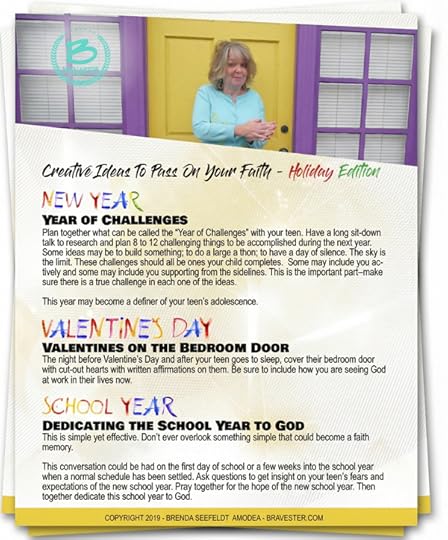 B
Creative Ideas To Pass On Your Faith - Holiday Edition
NEW YEAR
YEAR OF CHALLENGES
Plan together what can be called the "Year of Challenges" with your teen. Have a long sit-down
talk to research and plan 8 to 12 challenging things to be accomplished during the next year.
Some ideas may be to build something; to do a large a thon; to have a day of silence. The sky is
the limit. These challenges should all be ones your child completes.  Some may include you ac-
tively and some may include you supporting from the sidelines. This is the important part–make
sure there is a true challenge in each one of the ideas.
This year may become a definer of your teen's adolescence.
VALENTINE'S DAY
VALENTINES ON THE BEDROOM DOOR
The night before Valentine's Day and after your teen goes to sleep, cover their bedroom door
with cut-out hearts with written affirmations on them. Be sure to include how you are seeing God
at work in their lives now.
SCHOOL YEAR
DEDICATING THE SCHOOL YEAR TO GOD
This is simple yet effective. Don't ever overlook something simple that could become a faith
memory.
This conversation could be had on the first day of school or a few weeks into the school year
when a normal schedule has been settled. Ask questions to get insight on your teen's fears and
expectations of the new school year. Pray together for the hope of the new school year. Then
together dedicate this school year to God.
COPYRIGHT 2019 - BRENDA SEEFELDT AMODEA - BRAVESTER.COM